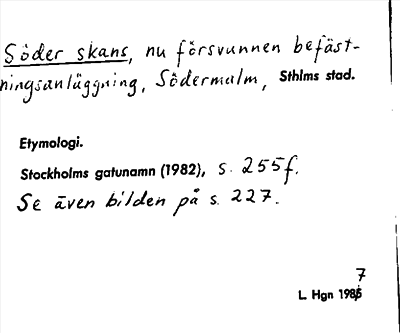 Söder skans, nu försvunnen befäst-
ningsanläggning, Södermalm, Sthlms stad.
Etymologi.
Stockholms gatunamn (1982), s. 255f.
Se även bilden på s. 227.
7
L. Hgn 1985